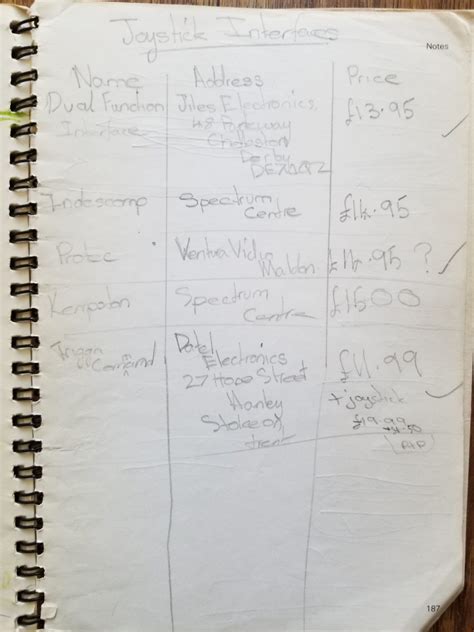 Joystick Interfaces
Notes
Name Address Price
Dual Function Jiles Electronics, £13.95
Interface 48 Parkway
Chellaston
Derby
Indescomp Spectrum £14.95
Centre
Protec Ventura £14.95 ?
Maldon
Kempston Spectrum £15.00
Centre
Trigger Datel £11.99
Command Electronics
27 Hope Street + joystick
Hanley £19.99
Stoke on
Trent P+P
187